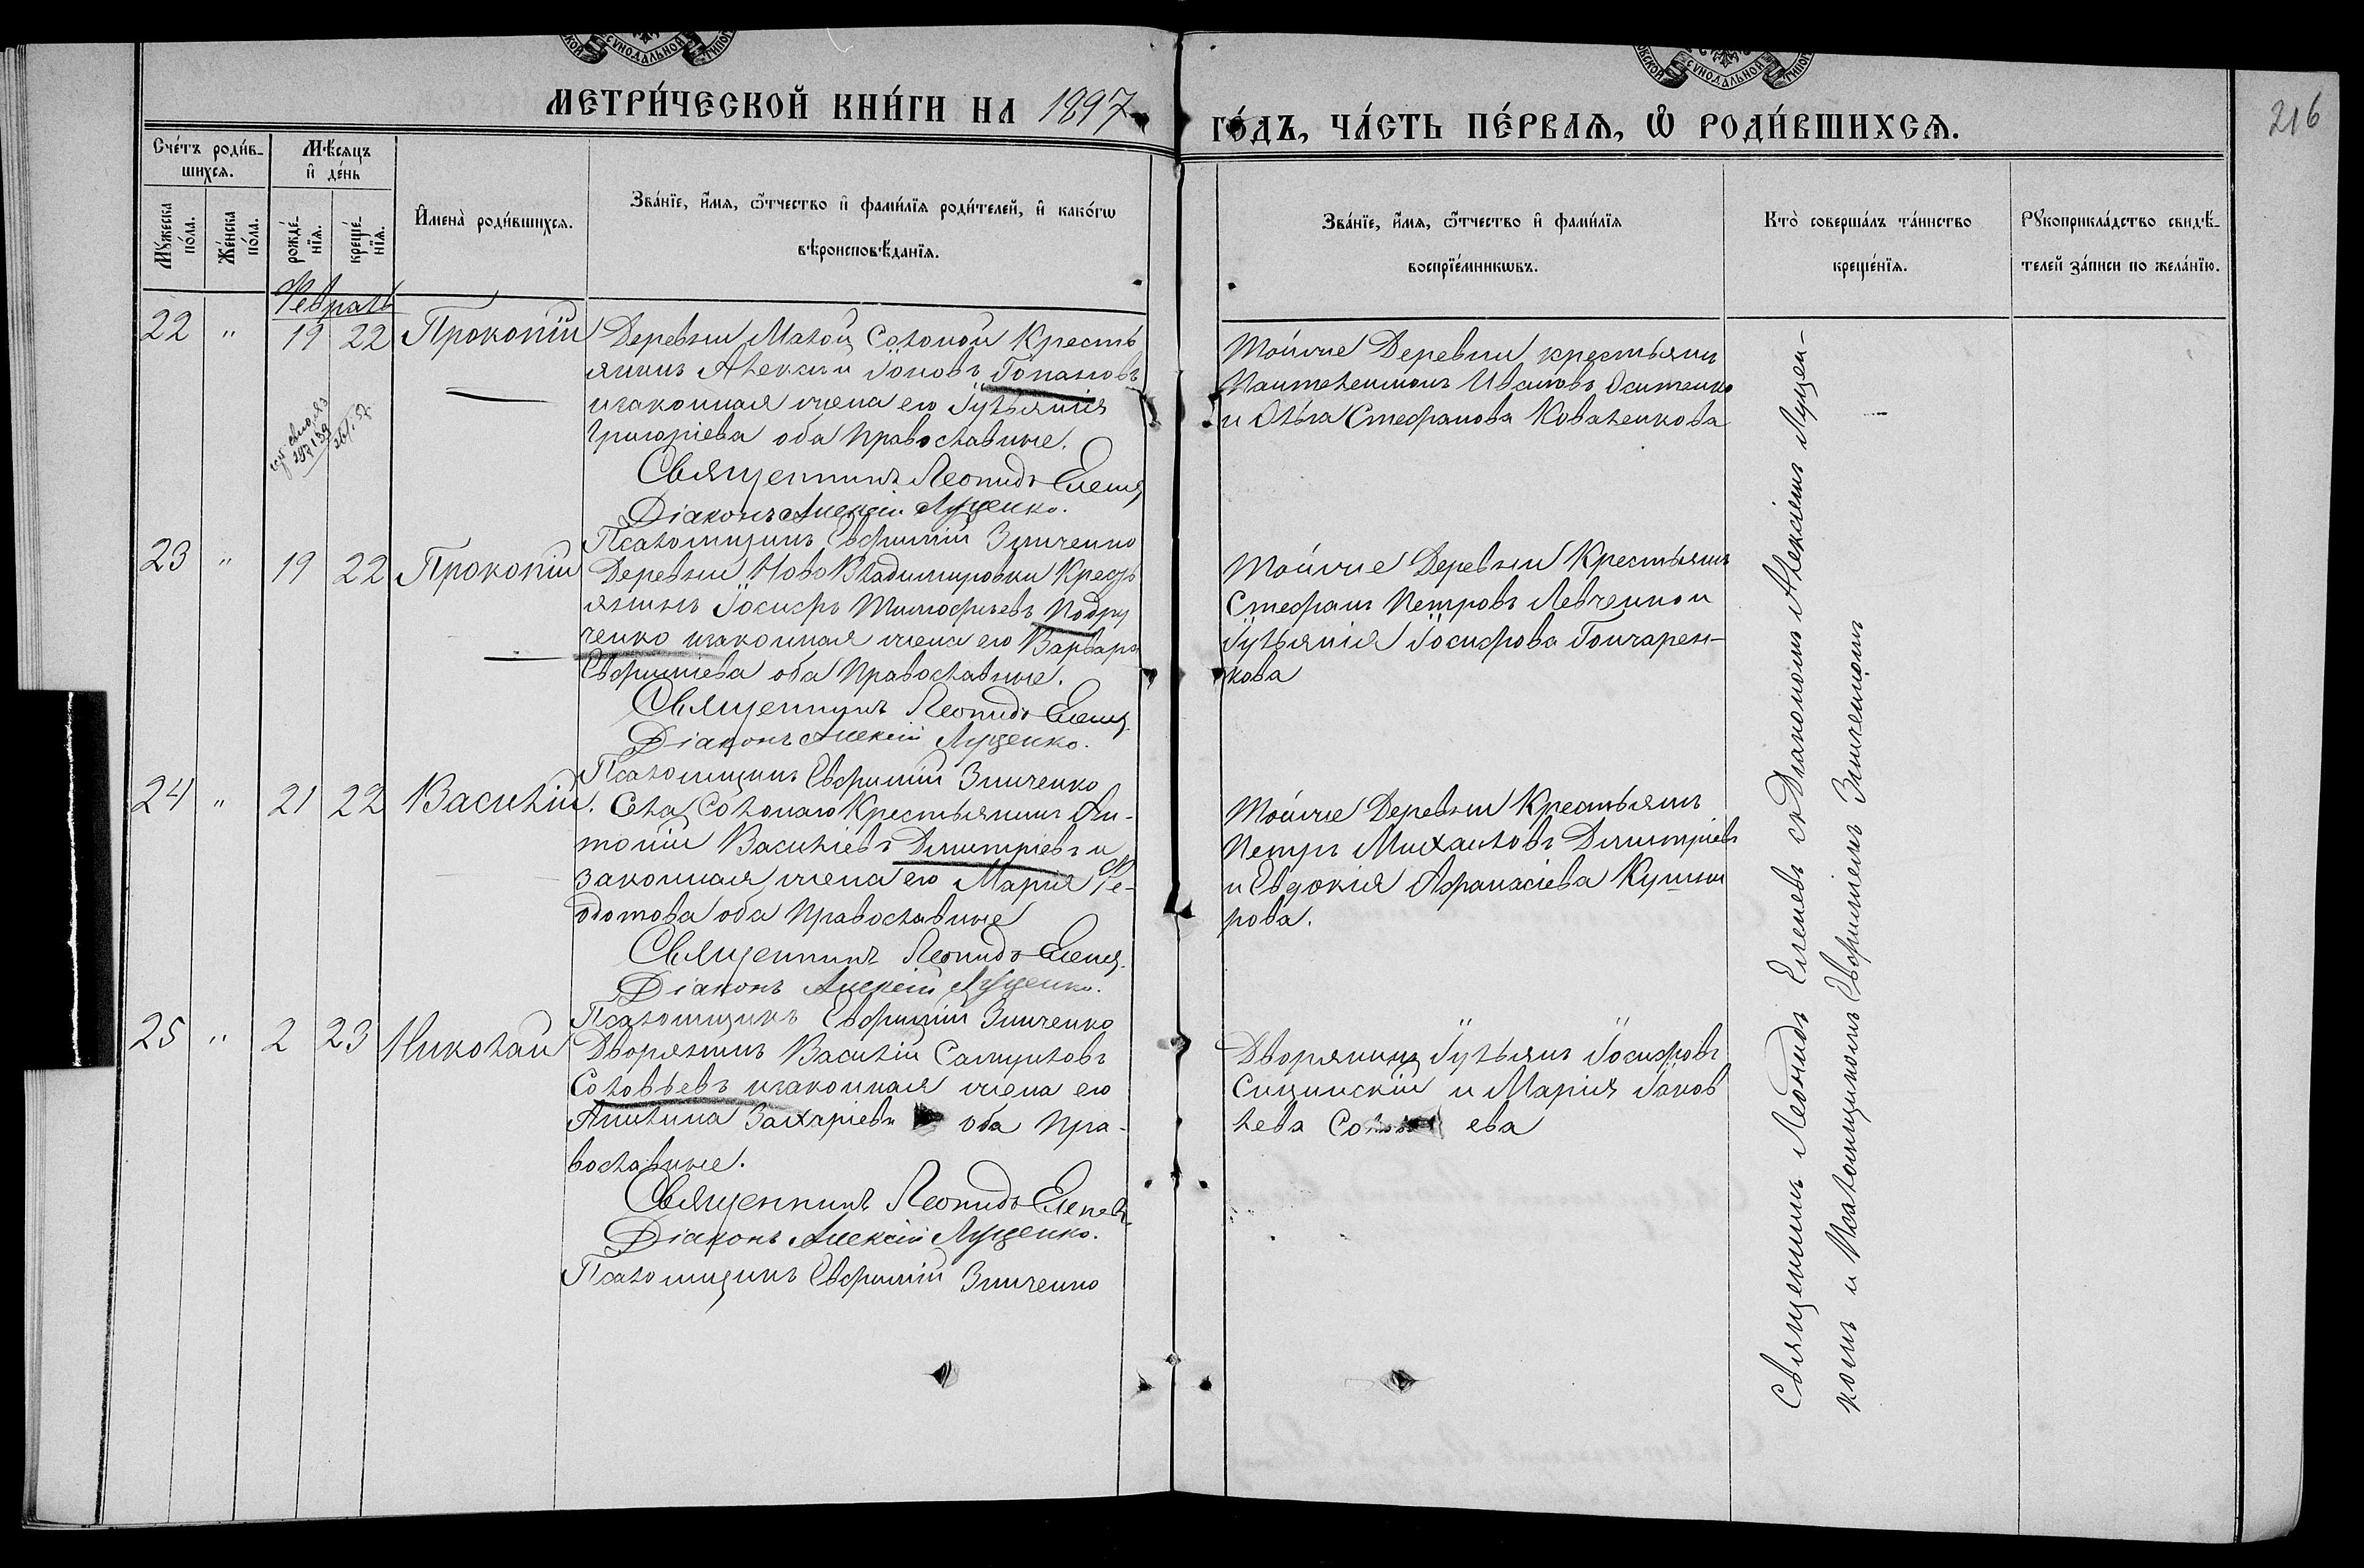 МЕТРИ́ЧЕСКОЙ КНИ́ГИ НА 1897
ГО́ДЪ, ЧА́СТЬ ПЕ́РВАѦ, Ѽ РОДИ́ВШИХСѦ.
216
Сче́тъ роди́в-
шихсѧ.
Мѣ́сѧцъ
и҆ де́нь
Мꙋ́жеска
по́ла.
Же́нска
по́ла.
рожде́-
нїѧ.
креще́-
нїѧ.
И҆мена̀ роди́вшихсѧ.
Зва́нїе, и҆́мѧ, ѻ҆́тчество и҆ фами́лїѧ роди́телей, и҆ како́гѡ
вѣроисповѣ́данїѧ.
Зва́нїе, и҆́мѧ, ѻ҆́тчество и҆ фами́лїѧ
воспрїе́мникѡвъ.
Кто̀ соверша́лъ та́инство
креще́нїѧ.
Рꙋкоприкла́дство свидѣ́-
телей за́писи по жела́нїю.
Февраль
22 " 19 22 Прокопій
Деревни Малой Солоной Кресть
янинъ Алексѣй Іоновъ Гопановъ
изаконная жена его Іульянія
Григоріева оба Православные.
Священникъ Леонидъ Еленев
Діаконъ Алексій Луценко.
Псаломщикъ Евфимій Зинченко
Тойже Деревни крестьянин
Пантелеимонъ Ивановъ Оситенко
и Ольга Стефанова Коваленкова
23 " 19 22 Прокопій
Деревни Ново Владимировки Кресть
янинъ Іосифъ Тимофѣевъ Подру
ченко изаконная жена его Варвара
Евфиміева оба Православные.
Священникъ Леонидъ Еленев
Діаконъ Алексій Луценко.
Псаломщикъ Евфимій Зинченко
Тойже Деревни Крестьянинъ
Стефанъ Петровъ Левченко и
Іульянія Іосифова Гончарен-
кова
24 " 21 22 Василій.
Села Солонаго Крестьянинъ Ан-
тоній Василіевъ Димитріевъ и
законная жена его Марія Ѳе-
одотова оба Православные
Священникъ Леонидъ Еленев
Діаконъ Алексій Луценко.
Псаломщикъ Евфимій Зинченко
Тойже Деревни Крестьянинъ
Петръ Михаиловъ Димитріевъ
и Евдокія Афанасіева Кушни
рова.
25 " 2 23 Николай
Дворянинъ Василій Самуиловъ
Соловьевъ изаконная жена его
Акилина Захаріева оба Пра-
вославные.
Священникъ Леонидъ Еленевъ
Діаконъ Алексій Луценко.
Псаломщикъ Евфимій Зинченко
Дворянинъ Іульянъ Іосифовъ
Сицинскій и Марія Іаков
лева Соловьева
Священникъ Леонидъ Еленевъ съ Діакономъ Алексіемъ Луцен-
комъ и Псаломщикомъ Евфиміемъ Зинченкомъ